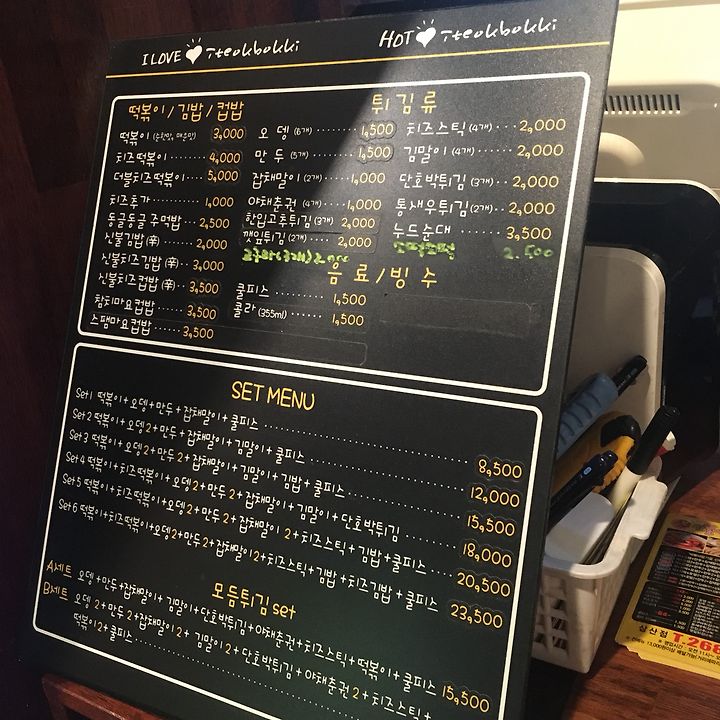 I LOVE Tteokbokki
HOT Tteokbokki
떡볶이/김밥/컵밥
떡볶이 (순한맛, 매운맛) 3,000
치즈떡볶이 ········ 4,000
더블치즈떡볶이 ····· 5,000
치즈추가 ·········· 1,000
동글동글 주먹밥 ·· 2,500
신불김밥 (辛) ···· 2,000
신불치즈김밥 (辛) · 3,000
신불치즈컵밥 (辛) · 3,500
참치마요컵밥 ······ 3,500
스팸마요컵밥 ······ 3,500
튀김류
오 뎅 (6개) ········ 1,500
만 두 (5개) ········ 1,500
잡채말이 (2개) ····· 1,000
야채춘권 (4개) ····· 1,000
한입고추튀김 (3개) 2,000
깻잎튀김 (2개) ···· 2,000
치즈스틱 (4개) ··· 2,000
김말이 (4개) ····· 2,000
단호박튀김 (3개) ·· 2,000
통새우튀김 (2개) ·· 2,000
누드순대 ········ 3,500
소떡소떡 2.500
음료/빙수
쿨피스 ········· 1,500
콜라 (355ml) ···· 1,500
SET MENU
Set 1 떡볶이+오뎅+만두+잡채말이+쿨피스 ········ 8,500
Set 2 떡볶이+오뎅2+만두+잡채말이+김말이+쿨피스 ········ 12,000
Set 3 떡볶이+오뎅2+만두2+잡채말이+김말이+김밥+쿨피스 ········ 15,500
Set 4 떡볶이+치즈떡볶이+오뎅2+만두2+잡채말이+김말이+단호박튀김 ···· 18,000
Set 5 떡볶이+치즈떡볶이+오뎅2+만두2+잡채말이2+치즈스틱+김밥+쿨피스 ···· 20,500
Set 6 떡볶이+치즈떡볶이+오뎅2+만두2+잡채말이2+치즈스틱+김밥+치즈김밥+쿨피스 23,500
모듬튀김 set
A세트 오뎅+만두+잡채말이+김말이+단호박튀김+야채춘권+치즈스틱+떡볶이+쿨피스 15,500
B세트 오뎅2+만두2+잡채말이2+김말이2+단호박튀김+야채춘권2+치즈스틱+
떡볶이2+쿨피스 ··········
삼산점 T.268